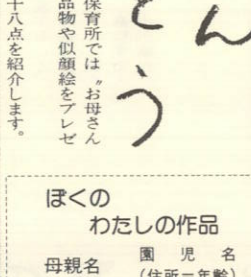 とう
ん
保育所では〝お母さん
品物や似顔絵をプレゼ
十八点を紹介します。
ぼくの
わたしの作品
母親名
園児名
(住所=年齢)